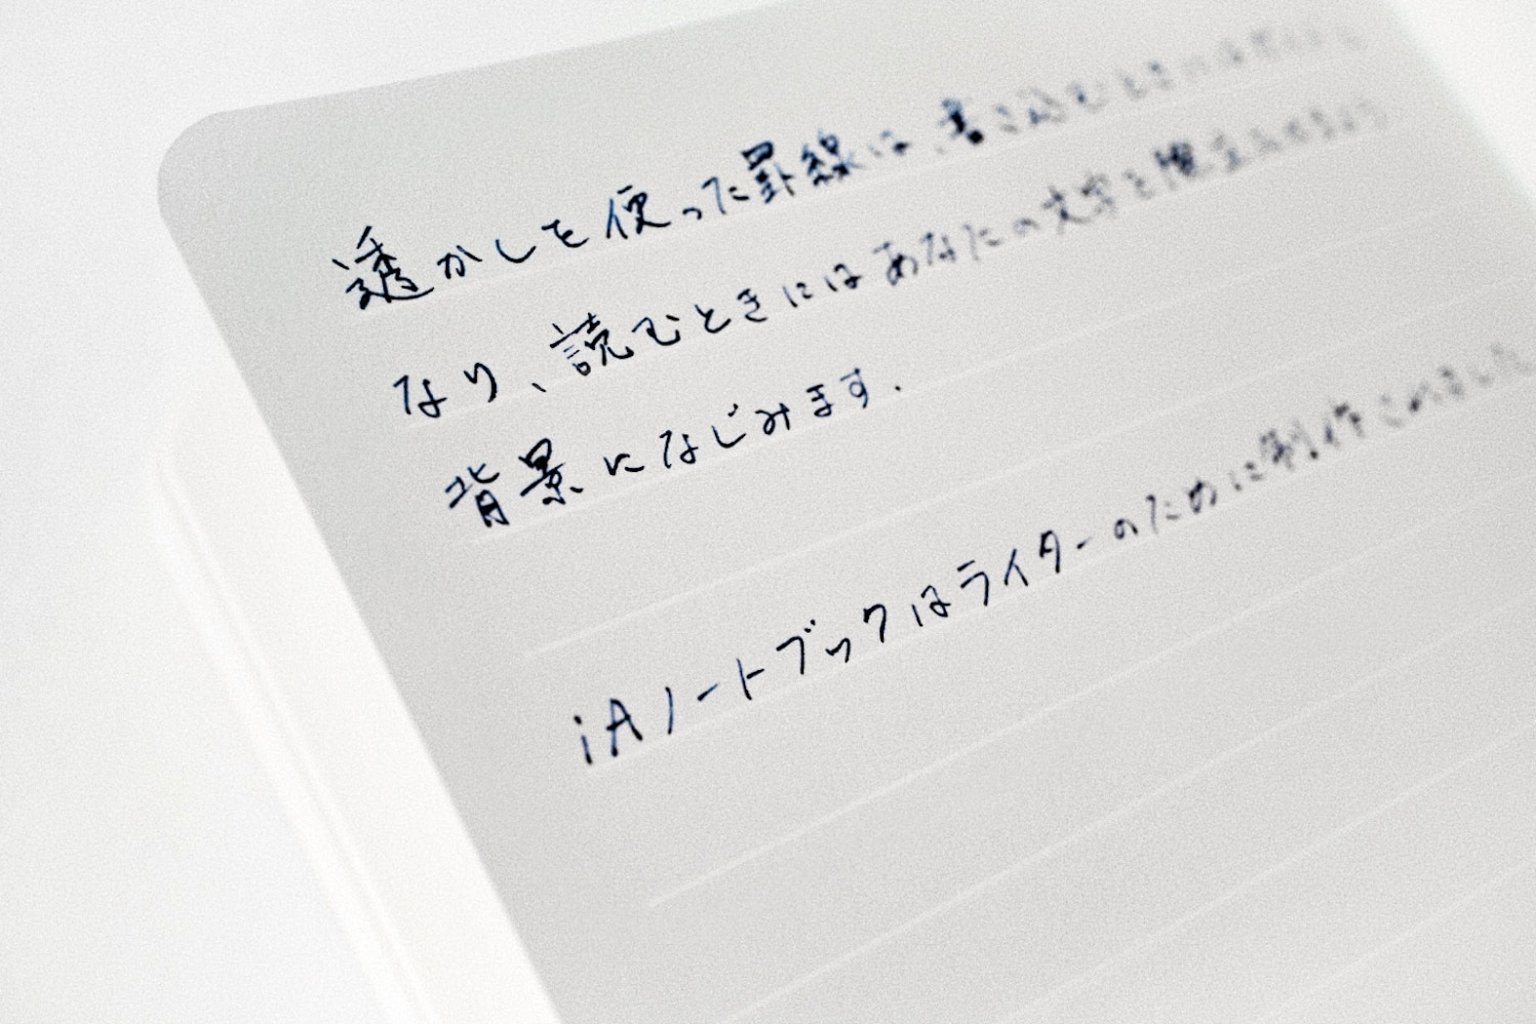 透かしを使った罫線は、書き込むときには
なり、読むときにはあなたの文字を
背景になじみます.
iAノートブックはライターのために制作されました